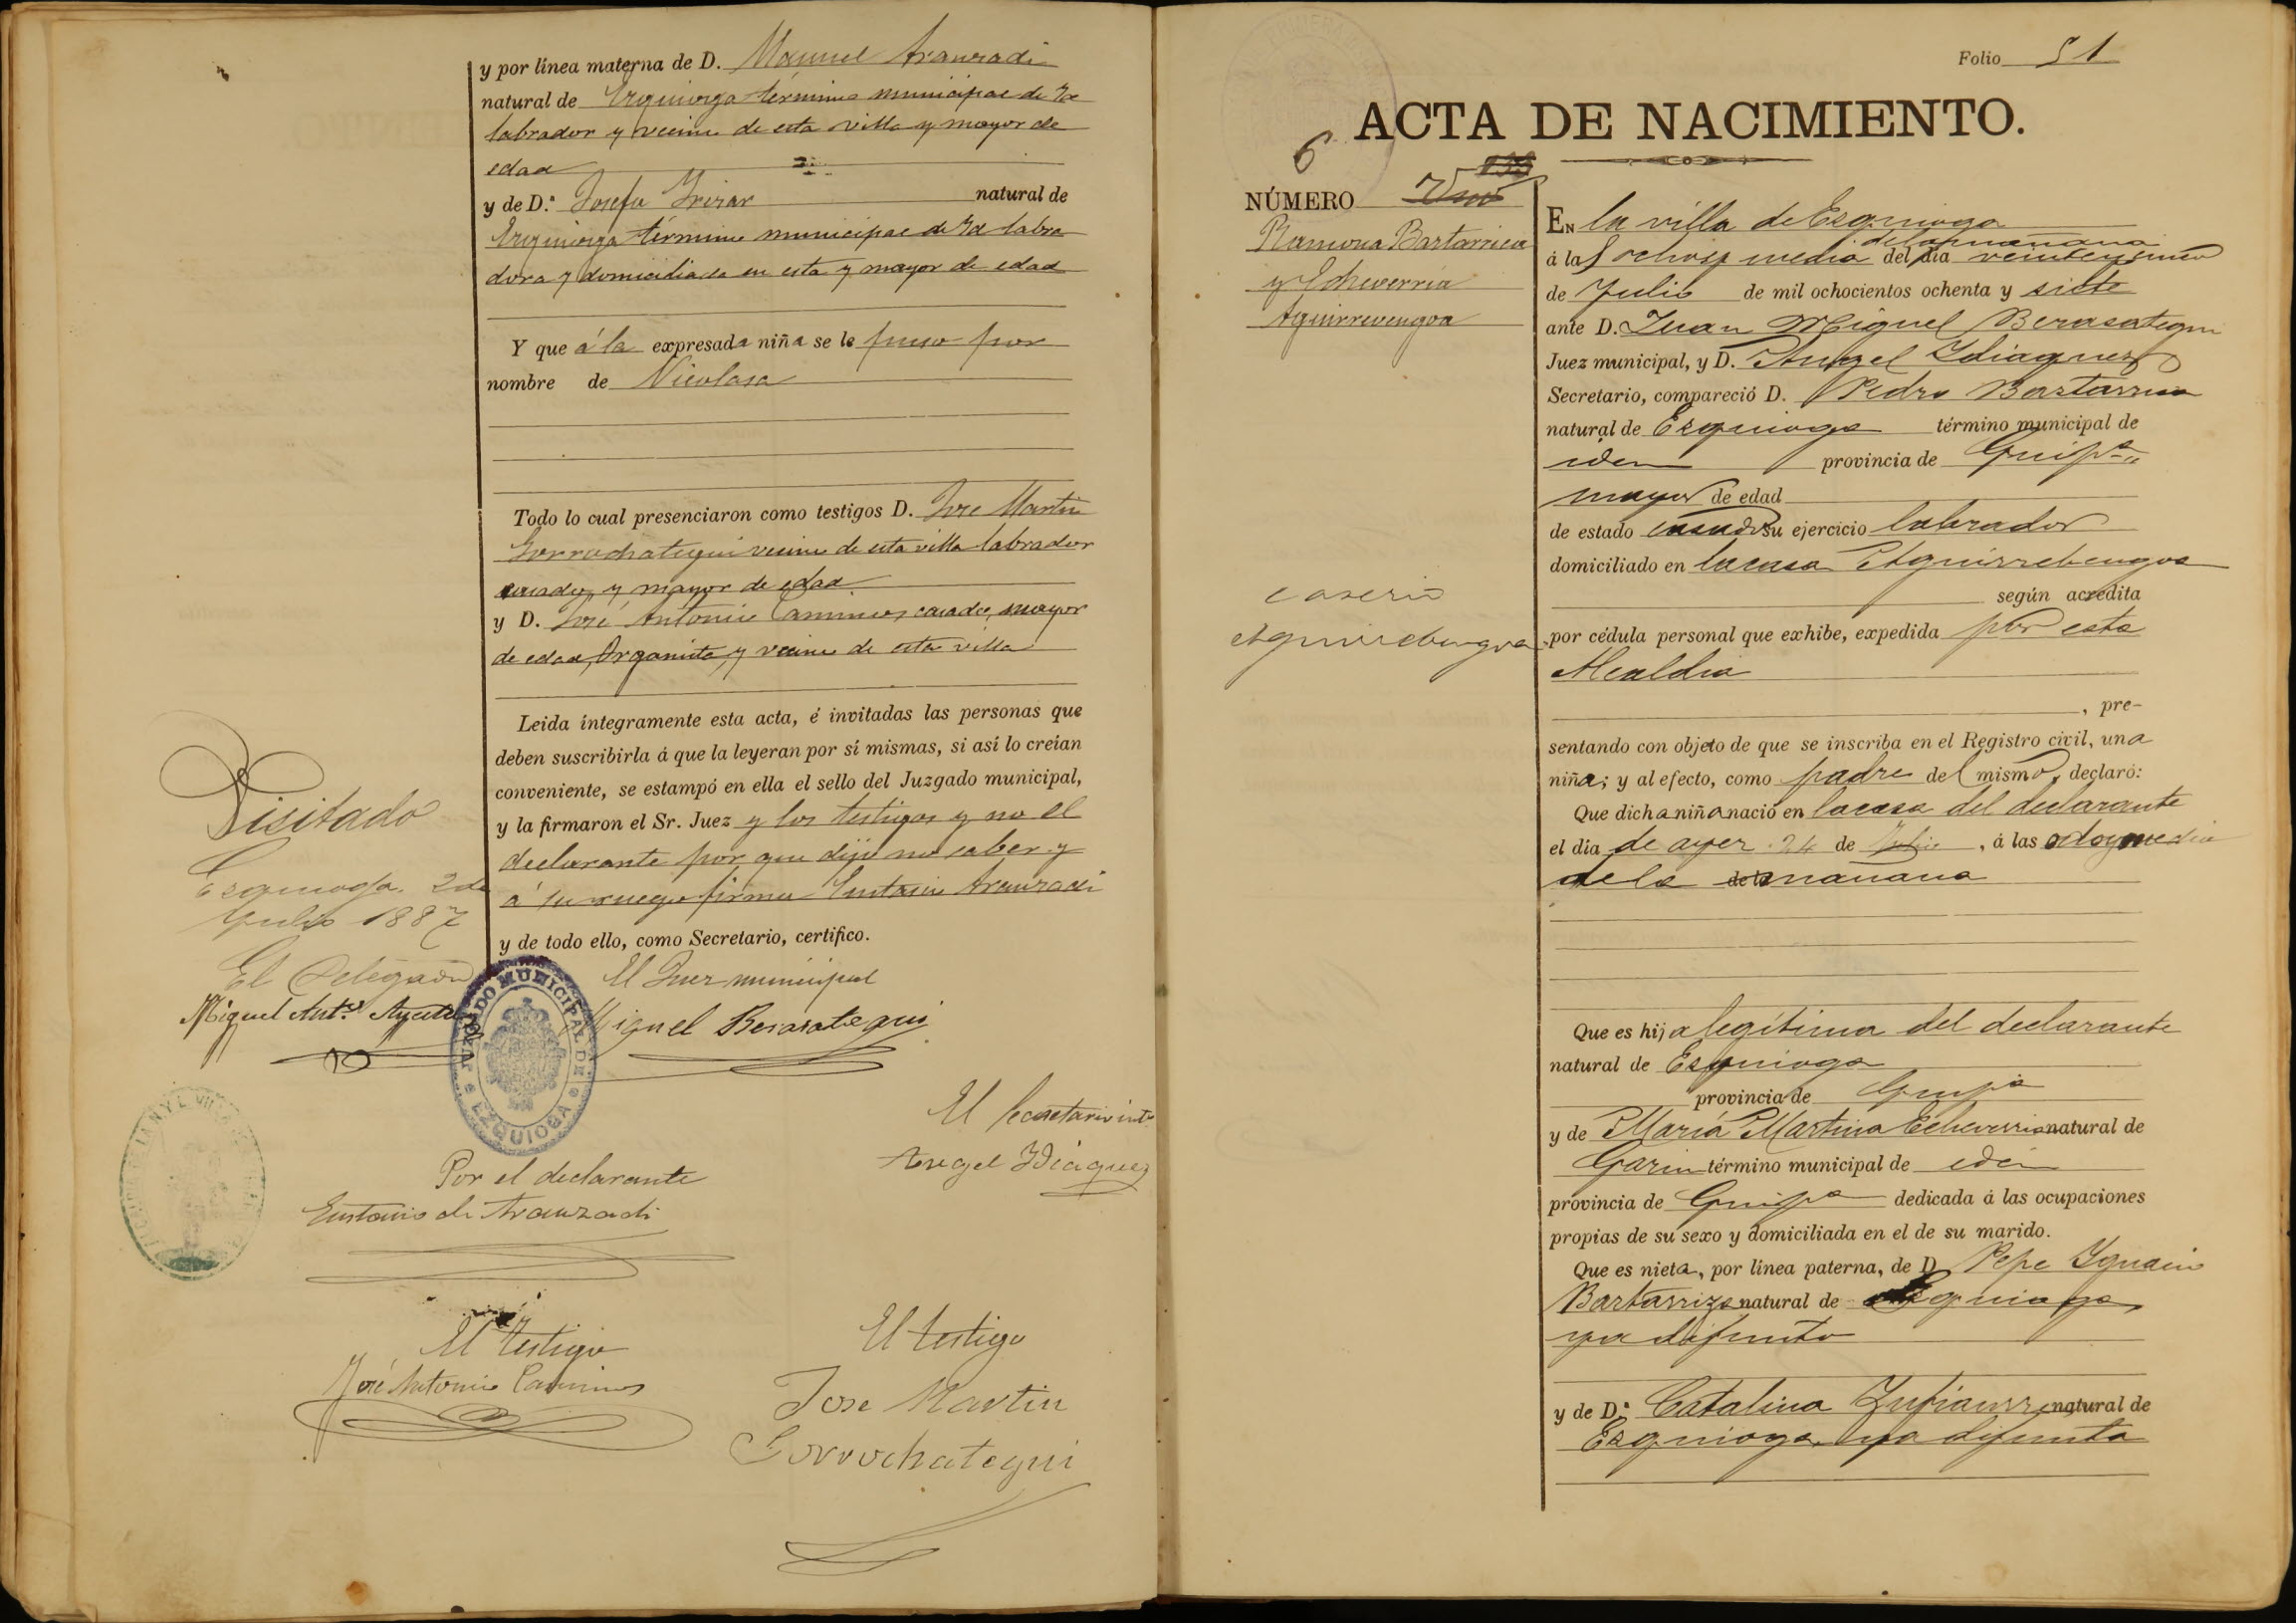 y por línea materna de D. Manuel Aranzadi
natural de Ezquioga término municipal de Id
labrador y vecino de esta villa y mayor de
edad
y de D.ª Josefa Irizar natural de
Ezquioga término municipal de Id labra
dora y domiciliada en esta y mayor de edad
Y que á la expresada niña se le puso por
nombre de Nicolasa
Todo lo cual presenciaron como testigos D. Jose Martin
Gorrochategui vecino de esta villa labrador
casado y mayor de edad
y D. José Antonio Caminos, casado, mayor
de edad, Organista, y vecino de esta villa
Leida íntegramente esta acta, é invitadas las personas que
deben suscribirla á que la leyeran por sí mismas, si así lo creían
conveniente, se estampó en ella el sello del Juzgado municipal,
y la firmaron el Sr. Juez y los testigos y no el
declarante por que dijo no saber y
á su ruego firma Eustasio Aranzadi
y de todo ello, como Secretario, certifico.
Visitado
Ezquioga. 2 de
Julio 1887
El Delegado
Miguel Ant.º
JUZGADO MUNICIPAL DE EZQUIOGA
El Juez municipal
Miguel Berasategui
El Secretario int.º
Angel Idiaquez
Por el declarante
Eustasio de Aranzadi
El testigo
José Antonio Caminos
El testigo
Jose Martin
Gorrochategui
Folio 51
ACTA DE NACIMIENTO.
6
NÚMERO
Ramona Bastarrica
y Echeverria
Aguirrevengoa
caserio
Aguirrebengoa
EN la villa de Ezquioga
á las ocho y media de la mañana del dia veinte y cinco
de Julio de mil ochocientos ochenta y siete
ante D. Juan Miguel Berasategui
Juez municipal, y D. Angel Idiaquez
Secretario, compareció D. Pedro Bastarrica
natural de Ezquioga término municipal de
idem provincia de Guip.ª
mayor de edad
de estado casado su ejercicio labrador
domiciliado en la casa Aguirrebengoa
según acredita
por cédula personal que exhibe, expedida por esta
Alcaldia
, pre-
sentando con objeto de que se inscriba en el Registro civil, una
niña; y al efecto, como padre del mismo, declaró:
Que dicha niña nació en la casa del declarante
el dia de ayer 24 de Julio, á las ocho y media
de la de la mañana
Que es hija legítima del declarante
natural de Ezquioga
provincia de Guip.ª
y de María Martina Echeverria natural de
Garin término municipal de idem
provincia de Guip.ª dedicada á las ocupaciones
propias de su sexo y domiciliada en el de su marido.
Que es nieta, por línea paterna, de D. Pepe Ygnacio
Bartarriza natural de Ezquioga,
ya difunto
y de D.ª Catalina natural de
Ezquioga, ya difunta